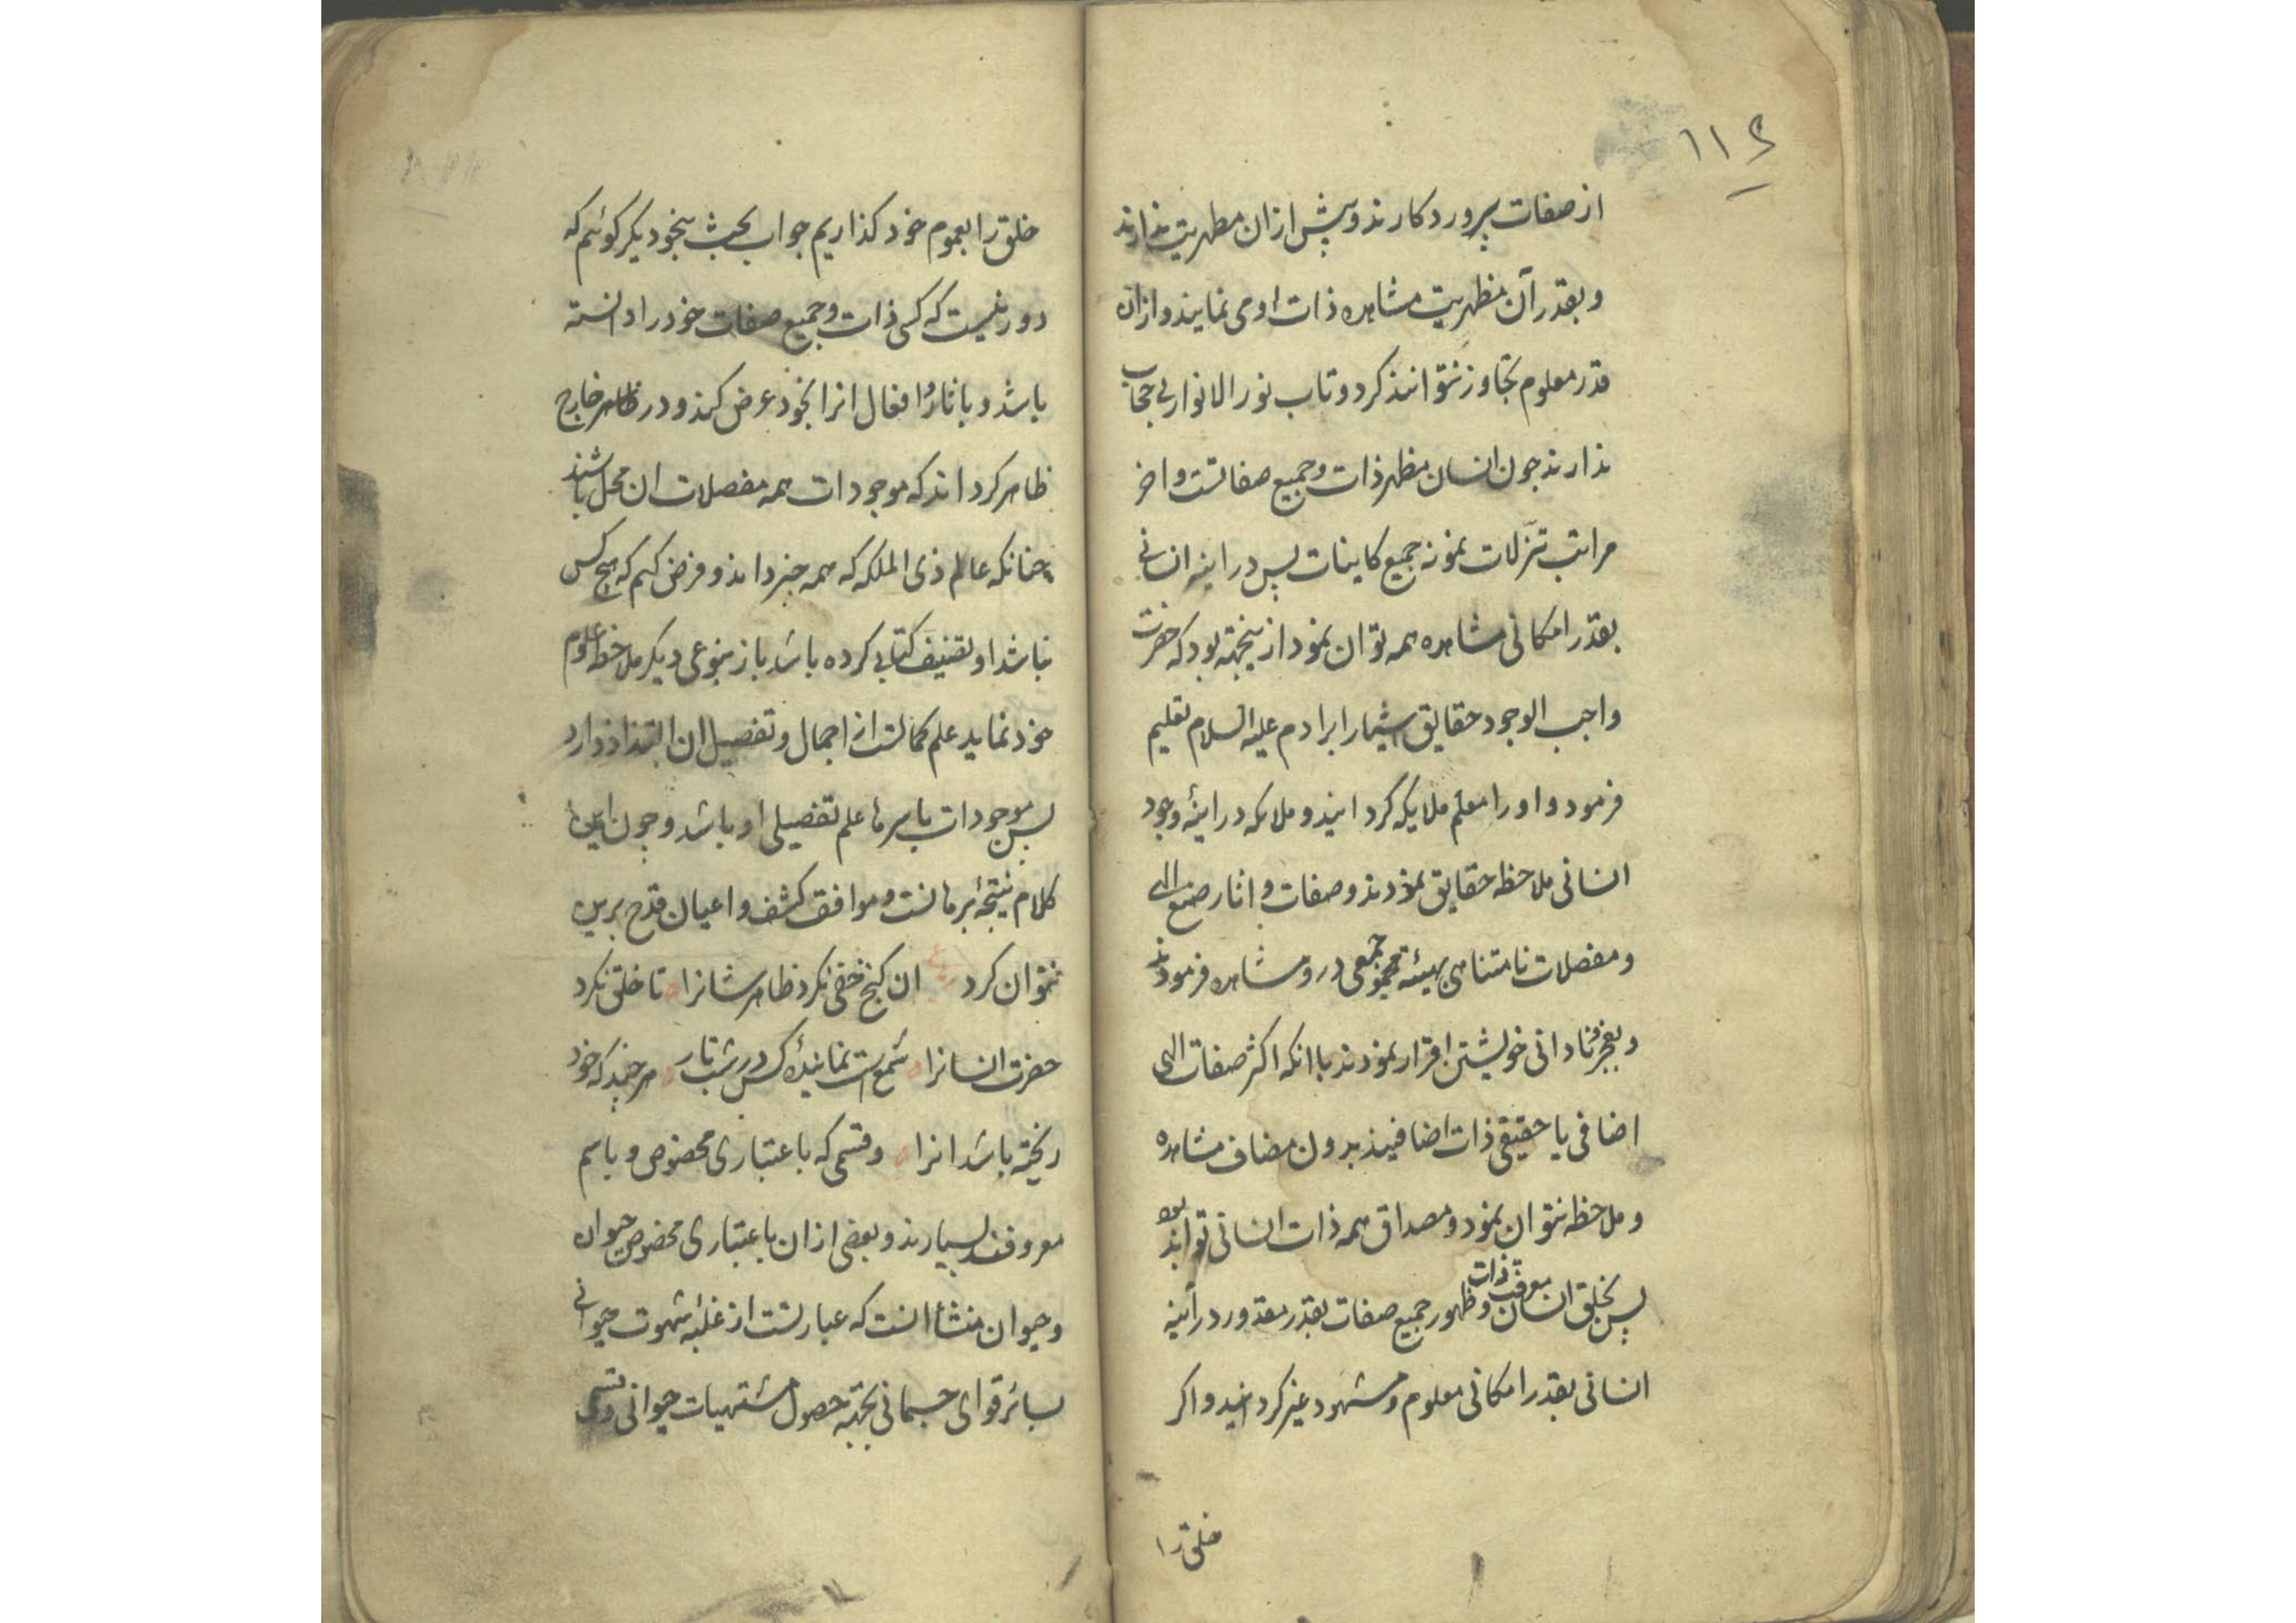 ۱۱۴
از صفات پروردکارند و پیش ازان مظهریت ندارند
و بقدر آن مظهریت مشاهده ذات او می نمایند و ازان
قدر معلوم تجاوز نتوانند کرد و تاب نور الانوار بی حجاب
ندارند جون انسان مظهر ذات و جمیع صفاتست و اخر
مراتب تنزّلات نمونه جمیع کاینات پس در اینه انسانی
بقدر امکانی مشاهده همه توان نمود ازینجهته بود که حضرت
واجب الوجود حقایق اشیا را بر ادم علیه السلام تعلیم
فرمود و او را معلم ملایکه کردانید و ملایکه در اینهٔ وجود
انسانی ملاحظه حقایق نمودند و صفات و اثار صنع الهی
و مفصلات نامتناهی بهیئة مجموعی در و مشاهده فرمودند
و بعجز و نادانی خویشتن اقرار نمودند با انکه اکثر صفات الهی
اضافی یا حقیقی ذات اضافیند بدون مضاف مشاهده
و ملاحظه نتوان نمود و مصداق همه ذات انسانی تواند بود
پس بخلق انسان معرفت ذات و ظهور جمیع صفات بقدر مقدور در آینه
انسانی بقدر امکانی معلوم و مشهود غیر کردانید و اکر
خلق را
خلق را بعموم خود کذاریم جواب بحث بنحو دیکر کوئیم که
دور نیست که کسی ذات و جمیع صفات خود را دانسته
باشد و باثار و افعال انرا بخود عرض کند و در ظاهر خارج
ظاهر کرداند که موجودات همه مفصلات ان مجمل باشند
جنانکه عالم ذی الملکه که همه جیز داند و فرض کنیم که هیج کس
نباشد او تصنیف کتابی کرده باشد باز بنوعی دیکر ملاحظه علوم
خود نماید علم کمالست از اجمال و تفصیل ان التذاذ دارد
پس موجودات باسرها علم تفصیلی او باشد و جون این
کلام نتیجهٔ برهانست و موافق کشف و اعیان قدح برین
نتوان کرد ان کنج خفی نکرد ظاهر شانرا تا خلق نکرد
حضرت انسانرا شمع است نمایندهٔ کس در شب تار هر جند که خود
ریخته باشد انرا و قسمی که باعتباری مخصوص و باسم
معروفند بسیارند و بعضی ازان باعتباری مخصوص حیوان
و حیوان منشأ انست که عبارتست از غلبه شهوت حیوانی
بسائر قوای جسمانی بجهته حصول مشتهیات حیوانی و قسمی